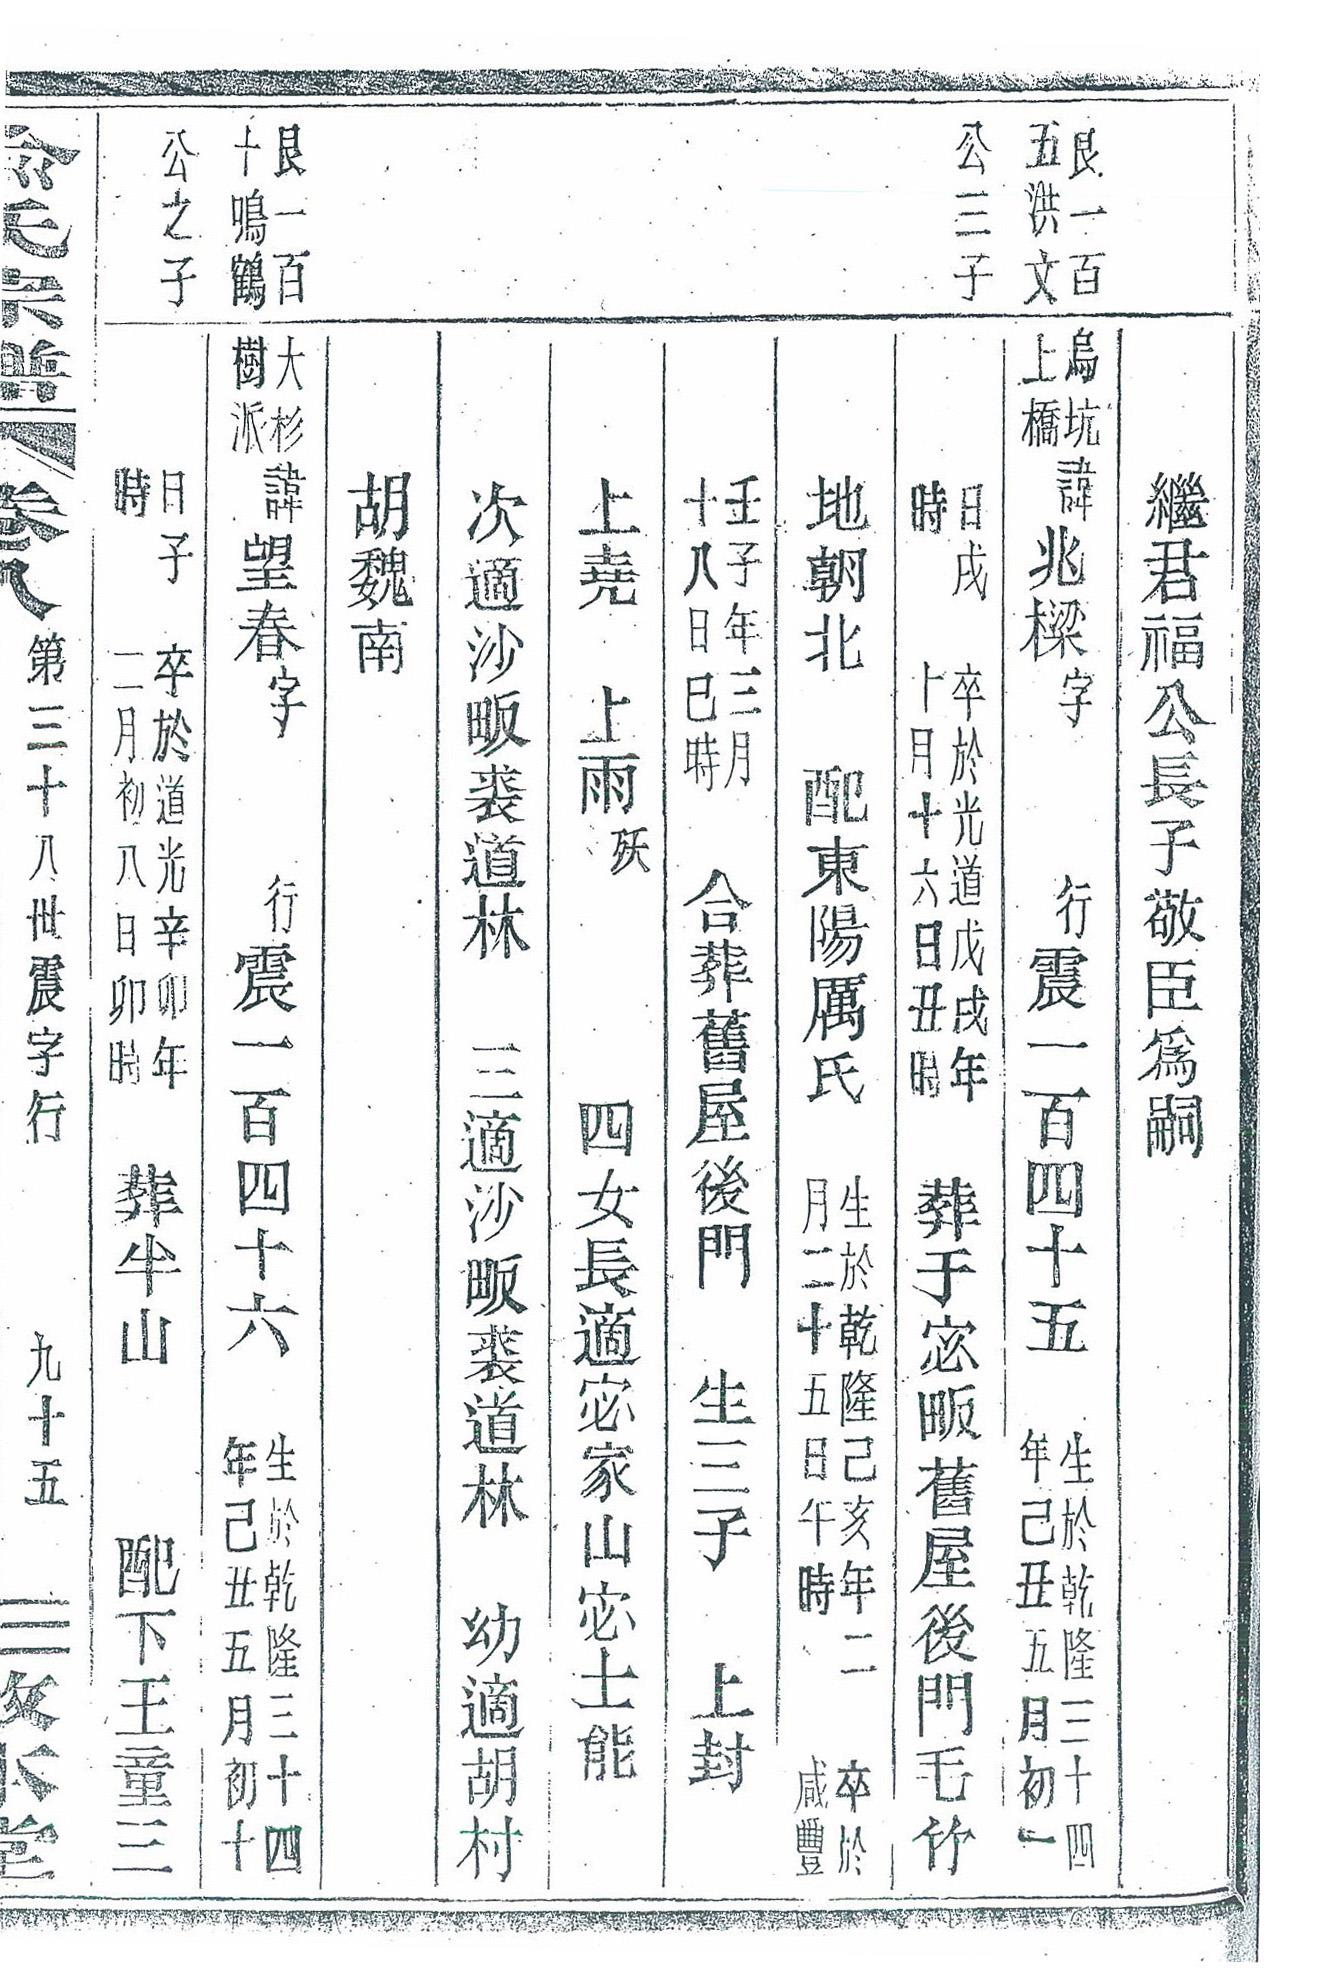 繼君福公長子敬臣爲嗣
艮一百
五洪文
公三子
烏坑
上橋
諱兆樑字 行震一百四十五 生於乾隆三十四
年己丑五月初一
日戌
時 卒於光道戊戌年
十月十六日丑時 葬于宓畈舊屋後門毛竹
地朝北 配東陽厲氏 生於乾隆己亥年二
月二十五日午時 卒於
咸豐
壬子年三月
十八日巳時 合葬舊屋後門 生三子 上封
上堯 上雨殀 四女長適宓家山宓士能
次適沙畈裘道林 三適沙畈裘道林 幼適胡村
胡魏南
艮一百
十鳴鶴
公之子
大杉
樹派
諱望春字 行震一百四十六 生於乾隆三十四
年己丑五月初十
日子
時 卒於道光辛卯年
二月初八日卯時 葬半山 配下王童三
氏宗譜 卷八 第三十八世震字行 九十五 敘本堂